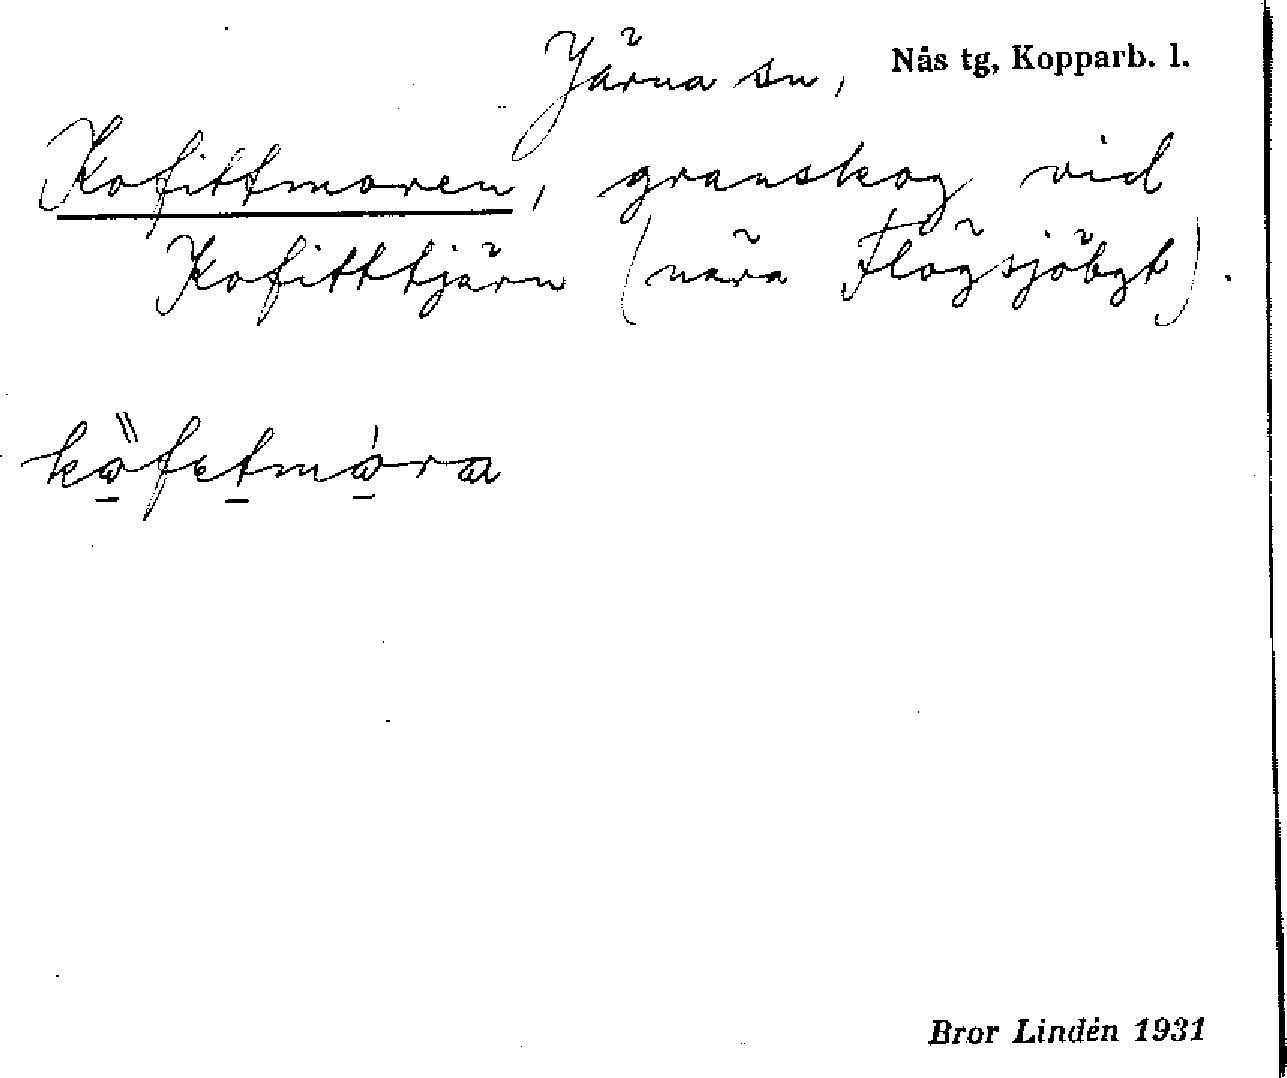 Järna sn, Nås tg, Kopparb. l.
Kofittmoren, granskog vid
Kofittjärn (nära Flögsjöbgt).
Bror Lindén 1931